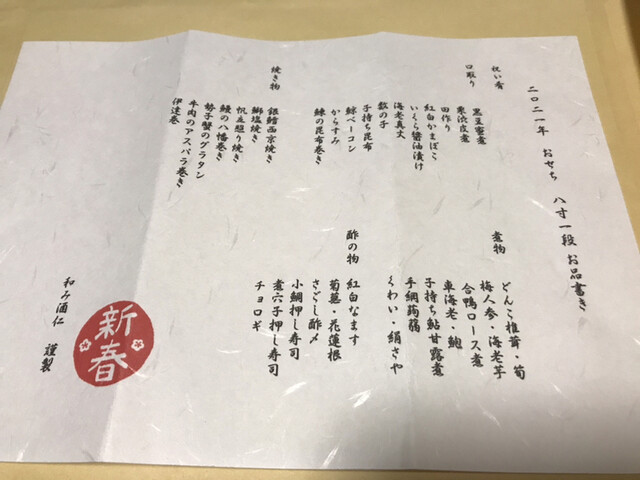 二〇二一年 おせち 八寸一段 お品書き
祝い肴
口取り
黒豆蜜煮
栗渋皮煮
田作り
紅白かまぼこ
いくら醤油漬け
海老真丈
数の子
子持ち昆布
鯨ベーコン
からすみ
鰊の昆布巻き
焼き物
銀鱈西京焼き
鰤塩焼き
帆立照り焼き
鰻の八幡巻き
勢子蟹のグラタン
牛肉のアスパラ巻き
伊達巻
煮物
どんこ椎茸・筍
梅人参・海老芋
合鴨ロース煮
車海老・鮑
子持ち鮎甘露煮
手綱蒟蒻
くわい・絹さや
酢の物
紅白なます
菊蕪・花蓮根
さごし酢〆
小鯛押し寿司
煮穴子押し寿司
チョロギ
新春
和み酒仁 謹製